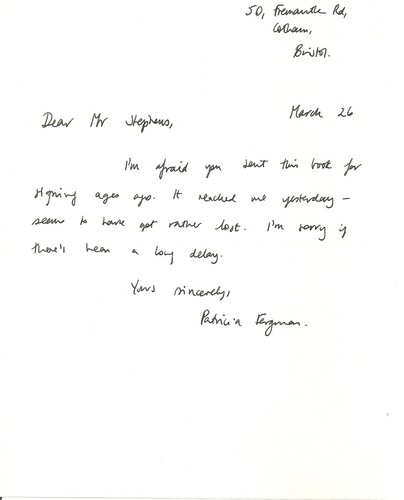 50, Fremantle Rd,
Cotham,
Bristol.
March 26
Dear Mr Stephens,
I'm afraid you sent this book for
signing ages ago. It reached me yesterday –
seem to have got rather lost. I'm sorry if
there's been a long delay.
Yours sincerely,
Patricia Ferguson.